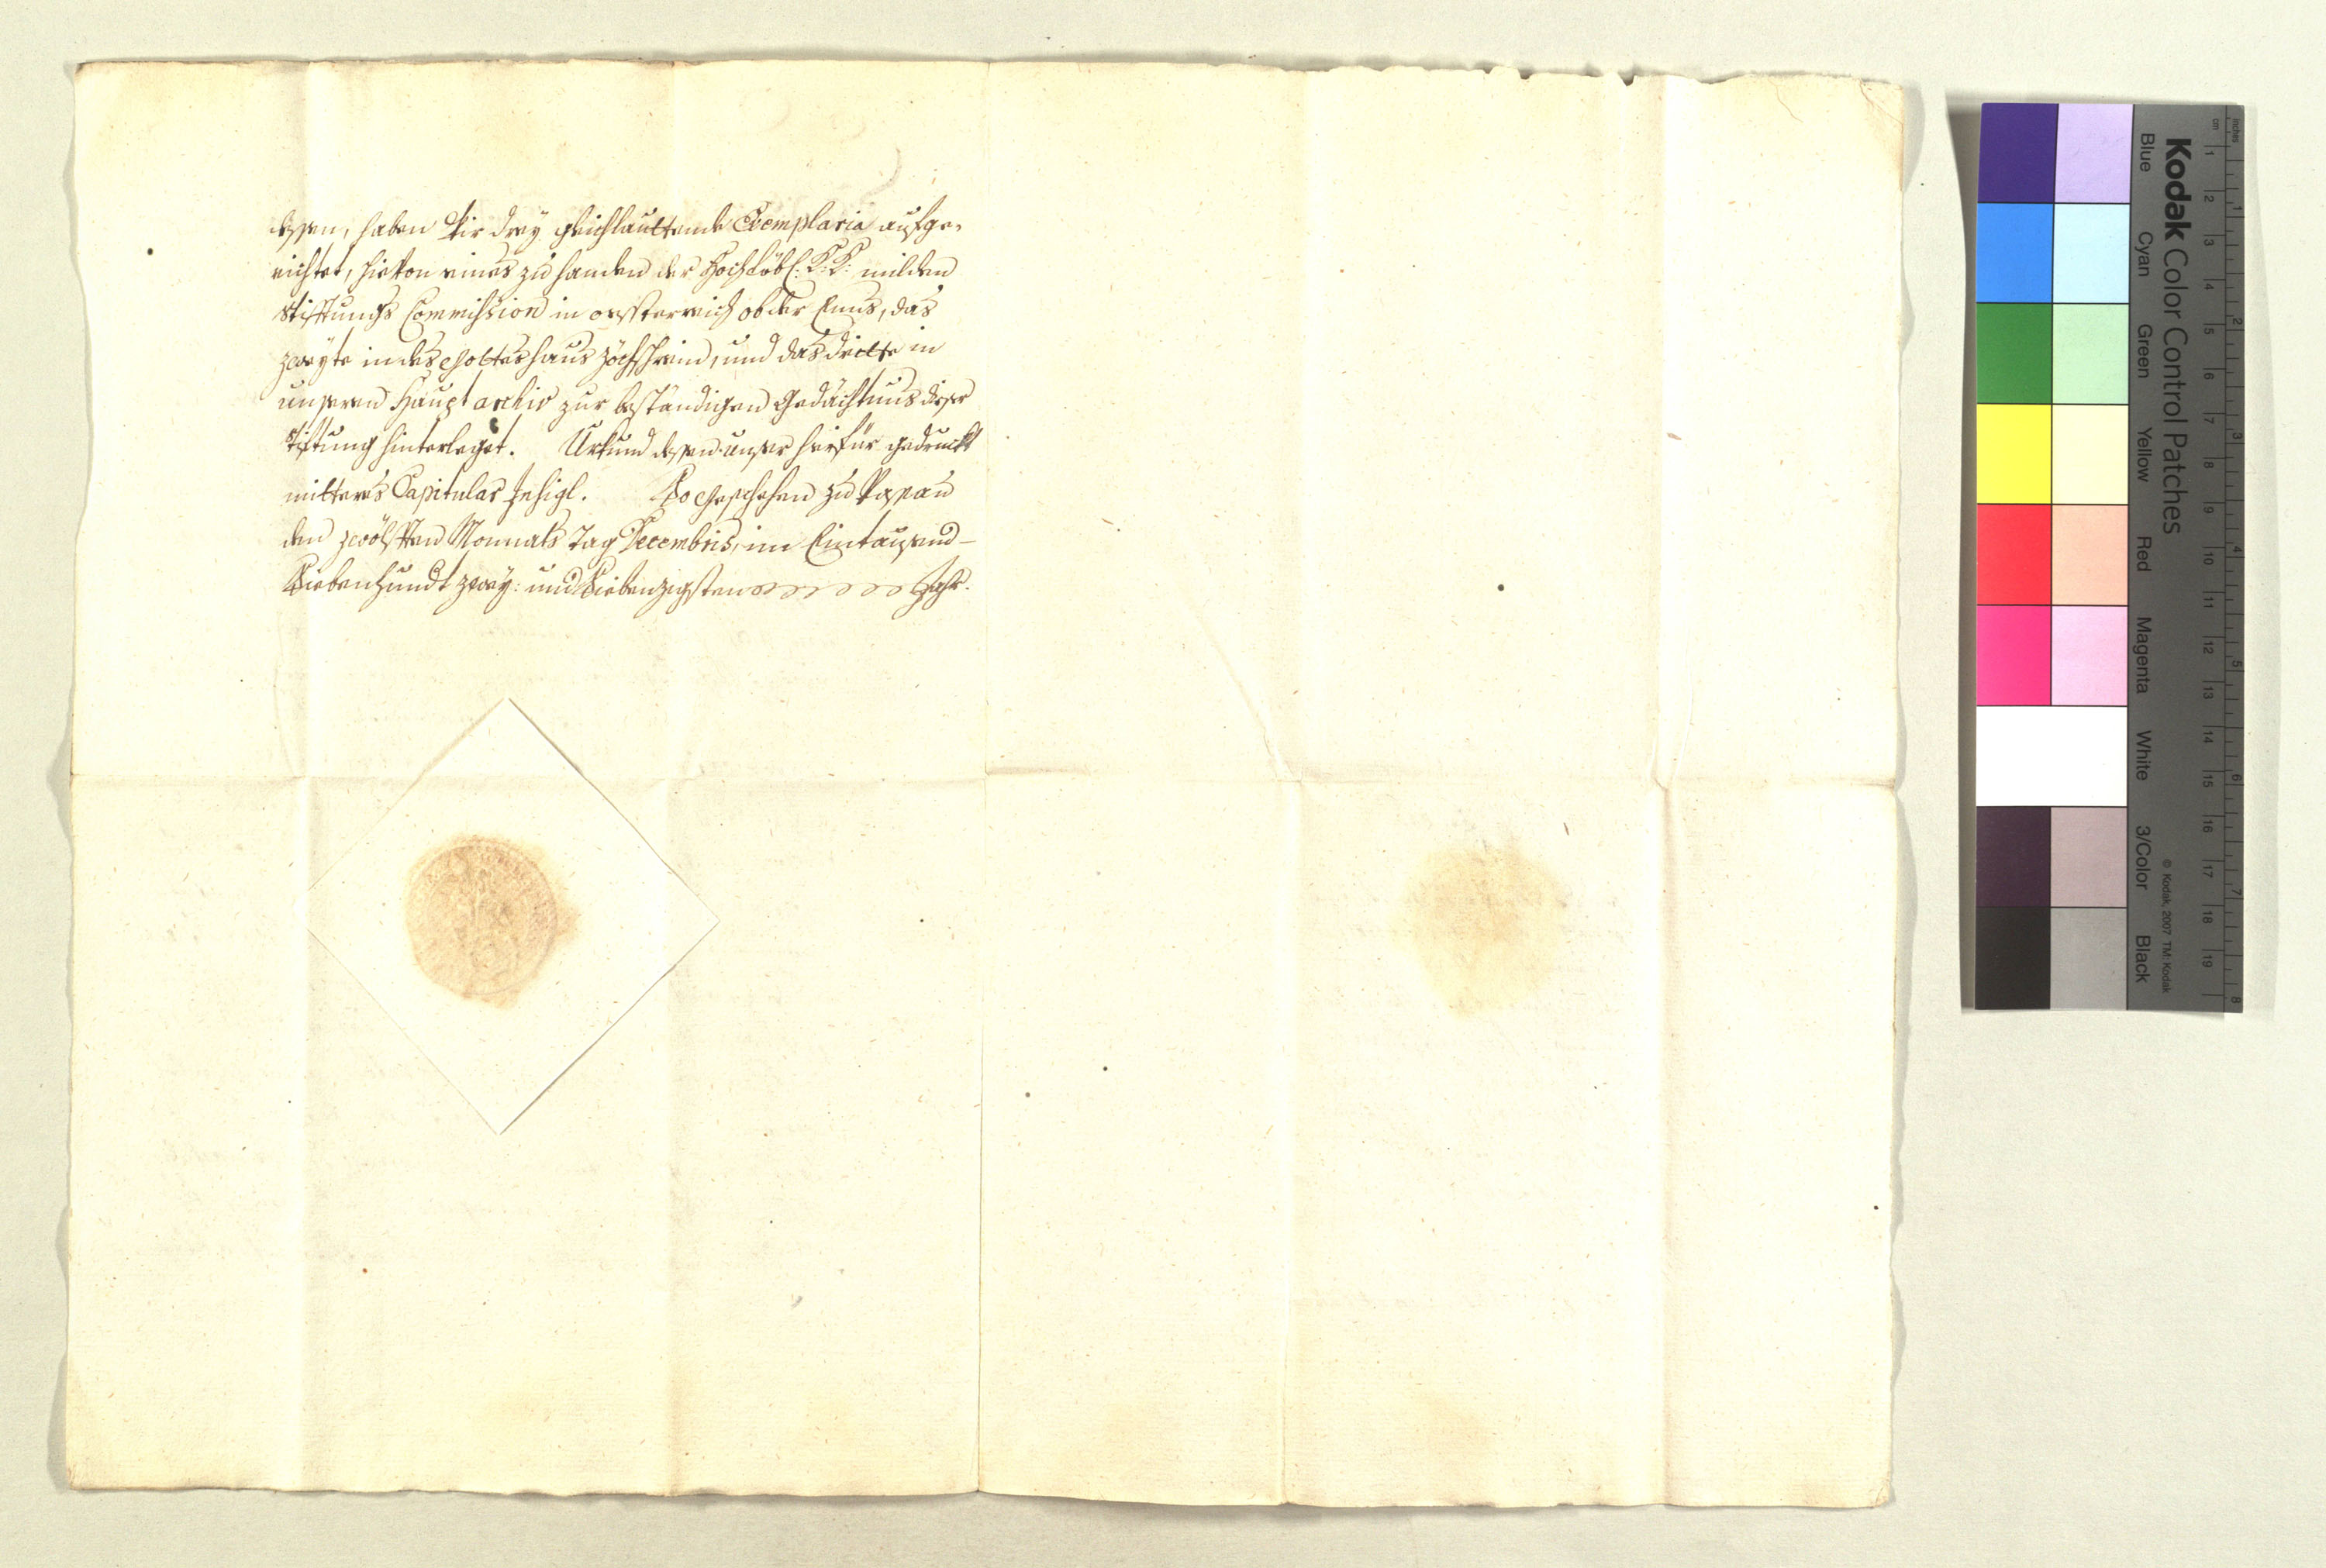 dessen, haben Wir drey gleichlauttende Exemplaria aufge-
richtet, hievon eines zu handen der Hochlöbl: K: K: milden
Stiftungs Commission in oesterreich ob der Enns, das
zweyte in des Gotteshaus Zöchschrein, und das dritte in
unseren Haupt archiv zur beständigen Gedächtnus diser
Stiftung hinterleget. Urkund dessen unser hierfür gedruckt
mitteres Capitular Insigl. So Geschehen zu Passau
den zwölften Monnats Tag Decembris, im Eintausend-
Siebenhundt zwey: und Siebenzigsten Jahr.
Kodak Color Control Patches
Blue Cyan Green Yellow Red Magenta White 3/Color Black
© Kodak, 2007 TM: Kodak
inches 1 2 3 4 5 6 7 8
cm 1 2 3 4 5 6 7 8 9 10 11 12 13 14 15 16 17 18 19